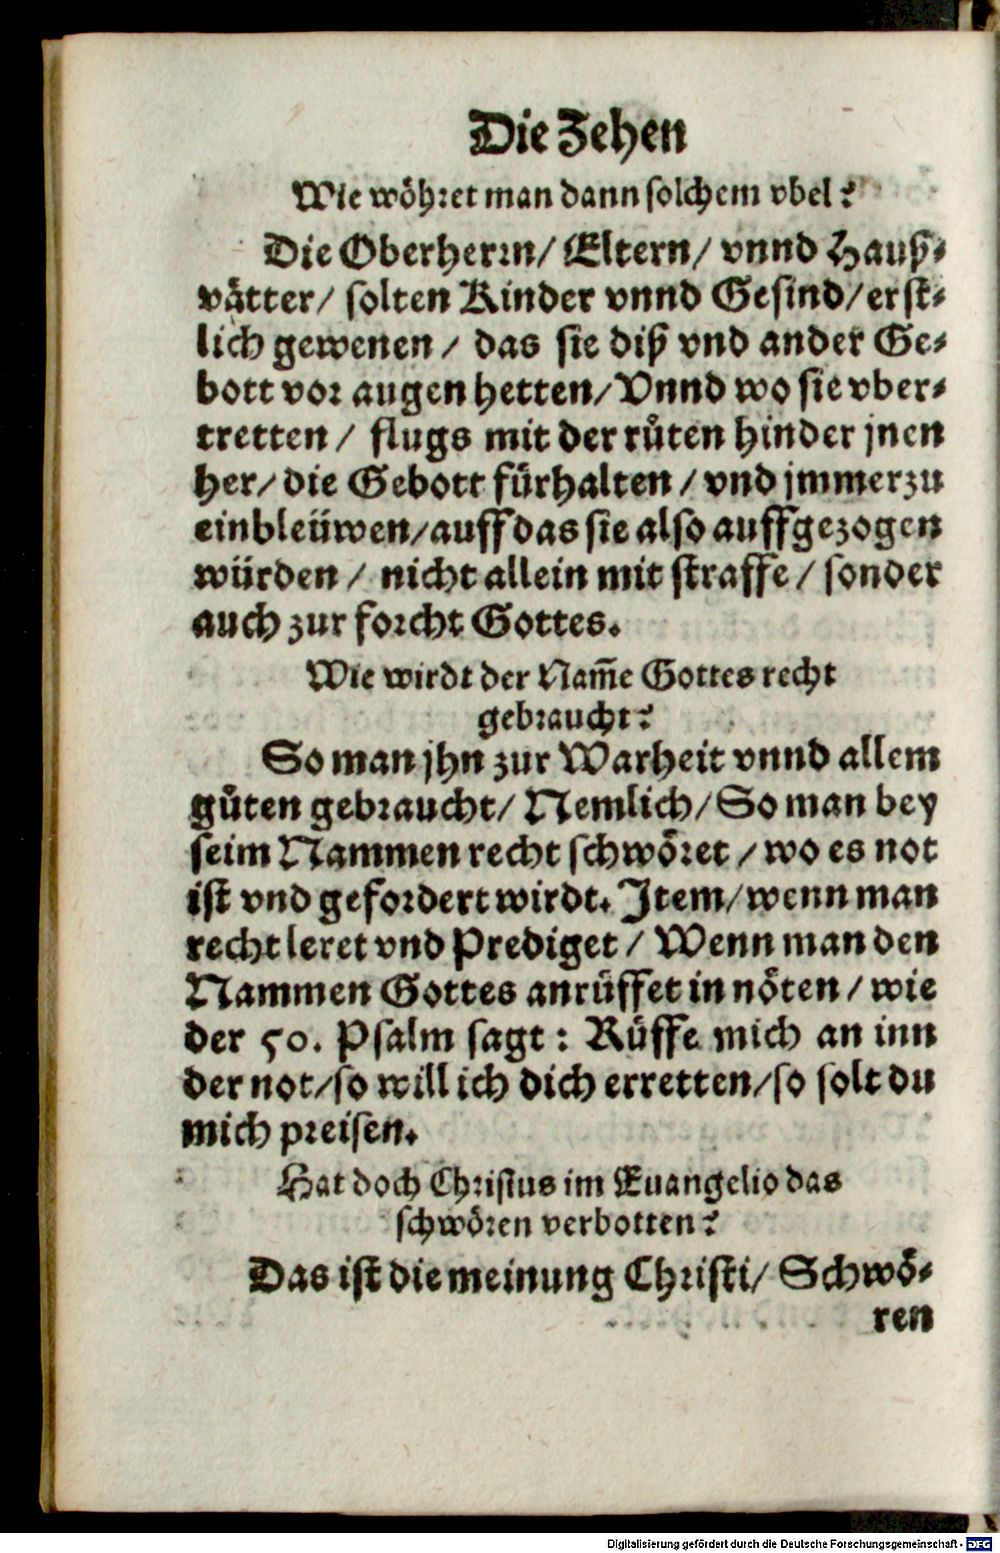 Die Zehen
Wie wöhret man dann solchem vbel?
Die Oberherrn/ Eltern/ vnnd Hauß-
vätter/ solten Kinder vnnd Gesind/ erst-
lich gewenen/ das sie diß vnd ander Ge-
bott vor augen hetten/ Vnnd wo sie vber-
tretten/ flugs mit der růten hinder jnen
her/ die Gebott fürhalten/ vnd jmmerzu
einbleüwen/ auff das sie also auffgezogen
würden/ nicht allein mit straffe/ sonder
auch zur forcht Gottes.
Wie wirdt der Nam̄e Gottes recht
gebraucht?
So man jhn zur Warheit vnnd allem
gůten gebraucht/ Nemlich/ So man bey
seim Nammen recht schwöret/ wo es not
ist vnd gefordert wirdt. Item/ wenn man
recht leret vnd Prediget/ Wenn man den
Nammen Gottes anrüffet in nöten/ wie
der 50. Psalm sagt: Rüffe mich an inn
der not/ so will ich dich erretten/ so solt du
mich preisen.
Hat doch Christus im Euangelio das
schwören verbotten?
Das ist die meinung Christi/ Schwö-
ren
Digitalisierung gefördert durch die Deutsche Forschungsgemeinschaft - DFG